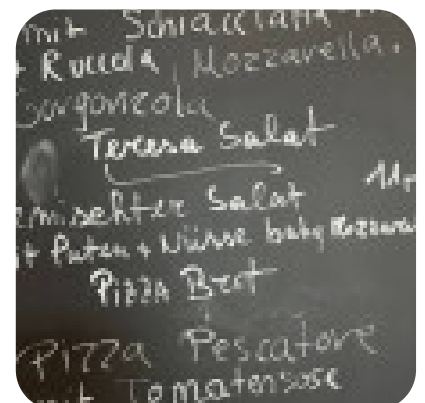 mit Schiacciatta
+ Ruccola, Mozzarella.
Gorgonzola
Teresa Salat
emischter Salat 11,-
it Puten + Nüsse baby Mozzarel
Pizza Brot
Pizza Pescatore
mit Tomatensose